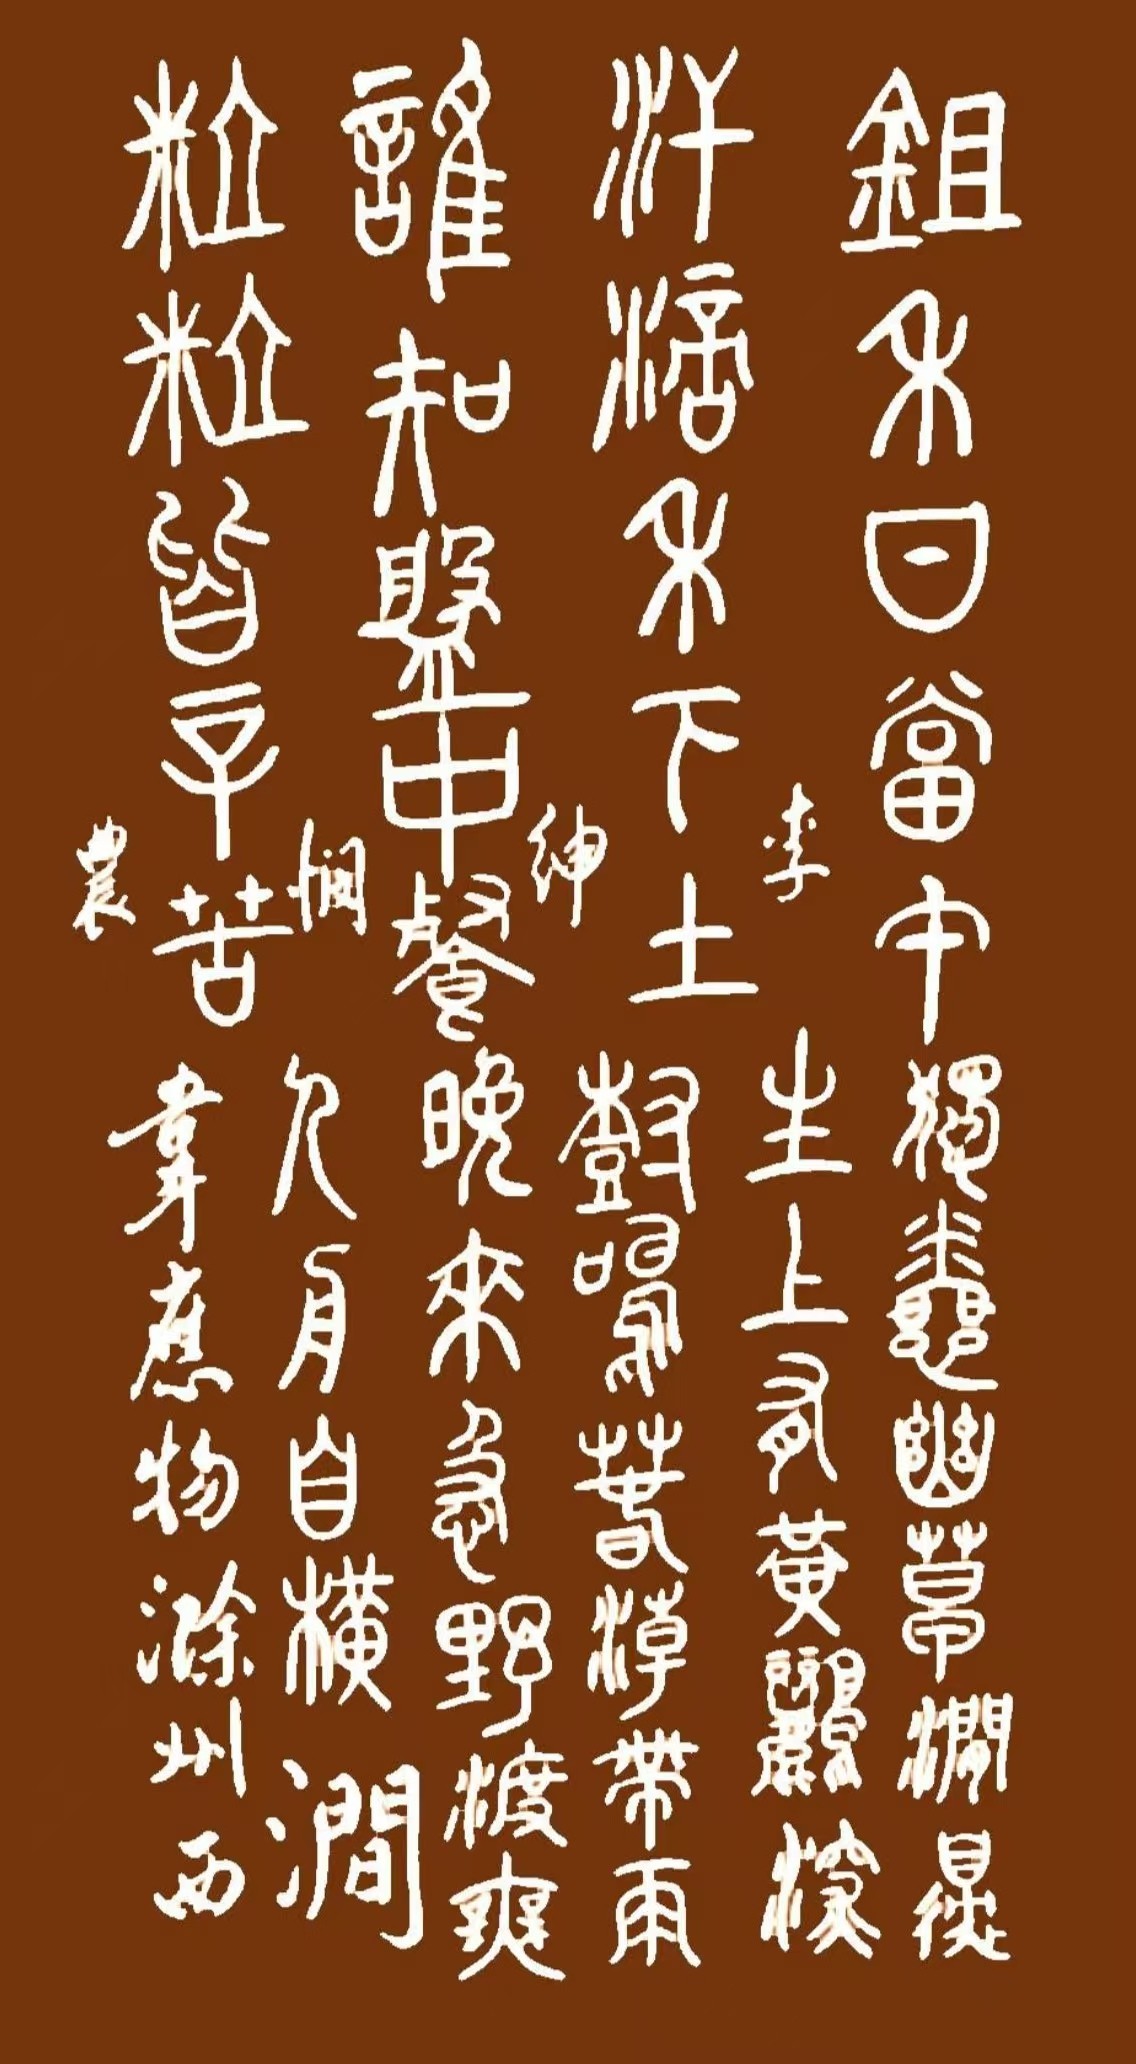 鉏禾日當中
汗滴禾下土
誰知盤中餐
粒粒皆辛苦
李
紳
憫
農
獨憐幽草澗邊
生上有黃鸝深
樹鳴春潮帶雨
晚來急野渡無
人舟自橫
韋應物滁州西
澗